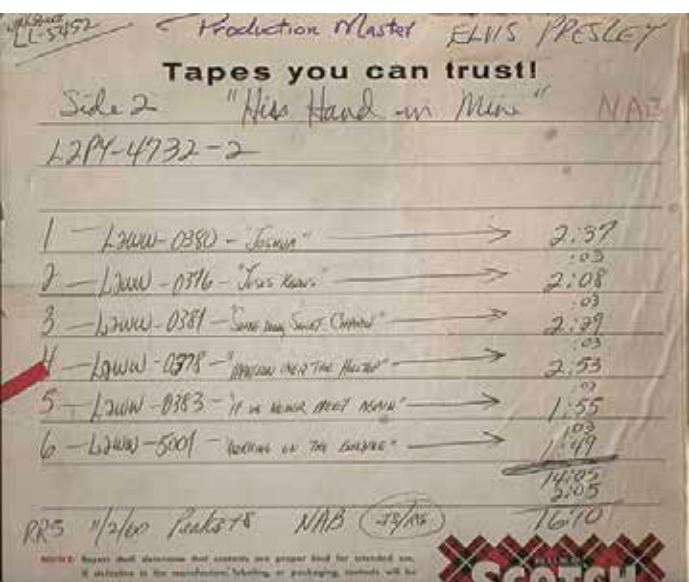 LL-5452
Production Master ELVIS PRESLEY
Tapes you can trust!
Side 2 "His Hand in Mine" NAB
L2PY-4732-2
1 - L2WW-0380 - "Joshua" → 2:37
:03
2 - L2WW-0376 - "Jesus Knows" → 2:08
:03
3 - L2WW-0381 - "Swing Down Sweet Chariot" → 2:29
:03
4 - L2WW-0378 - "MANSION OVER THE HILLTOP" → 2:53
:03
5 - L2WW-0383 - "IF WE NEVER MEET AGAIN" → 1:55
:03
6 - L2WW-5001 - "WORKING ON THE BUILDING" → 1:49
14:05
2:05
RRS 11/2/60 Peaks+8 NAB 16:10
NOTICE: Buyer shall determine that contents are proper kind for intended use.
If defective in the manufacture, labeling, or packaging, contents will be
SCOTCH